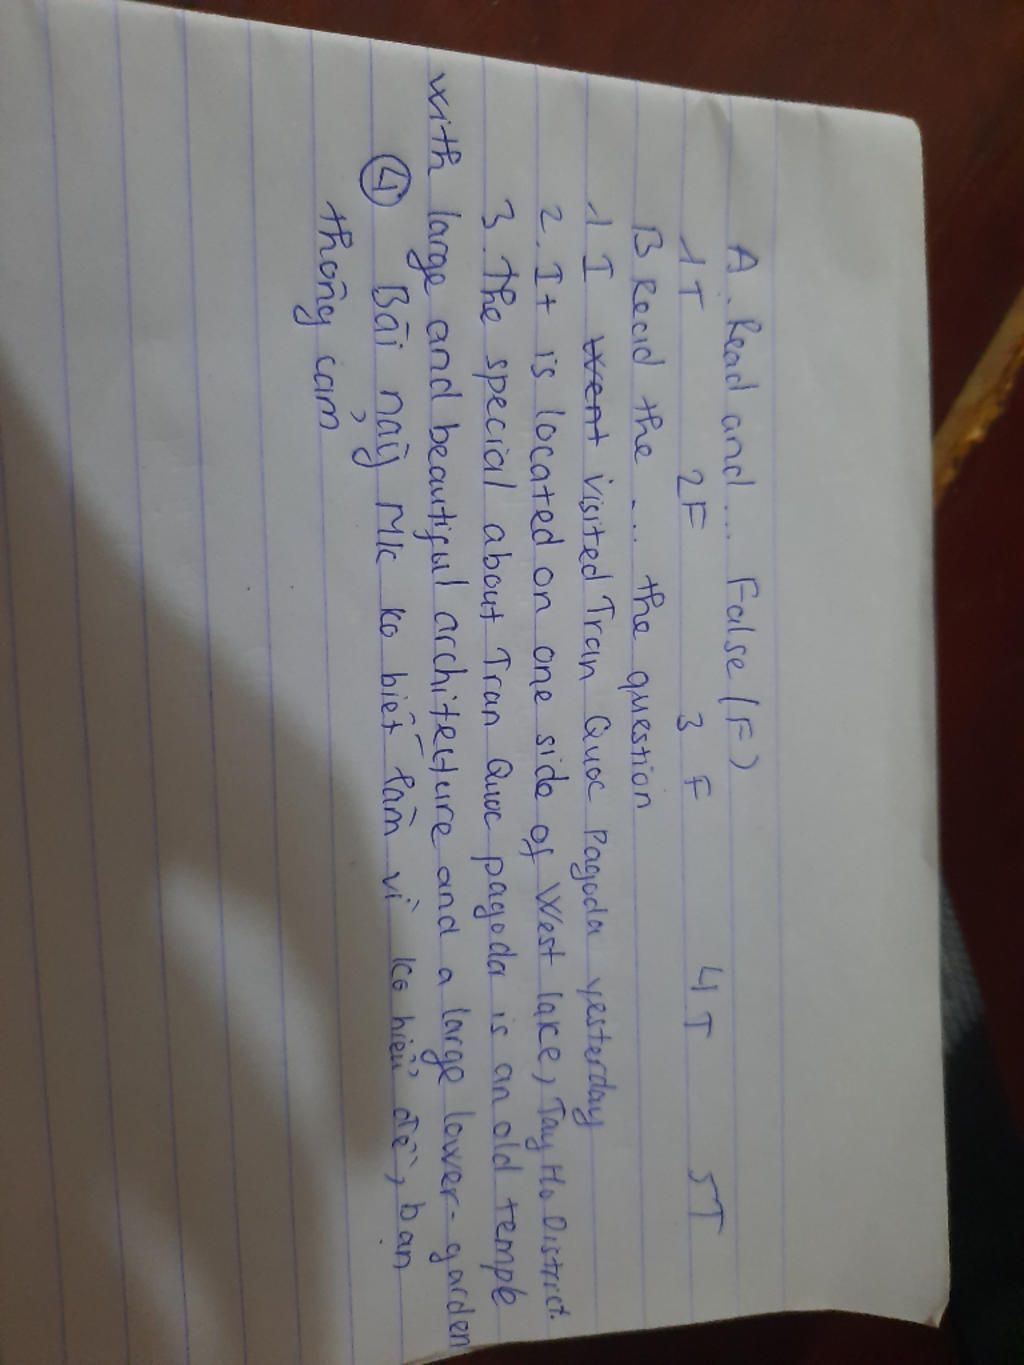 A. Read and... False (F)
1T 2F 3 F 4 T 5T
B Read the ... the question
1 I went visited Tran Quoc Pagoda yesterday
2. It is located on one side of West lake, Tay Ho District.
3. The special about Tran Quoc pagoda is an old temple
with large and beautiful architecture and a large lower-garden
4 Bài này Mk ko biết làm vì ko hiểu đề, bạn
thông cảm